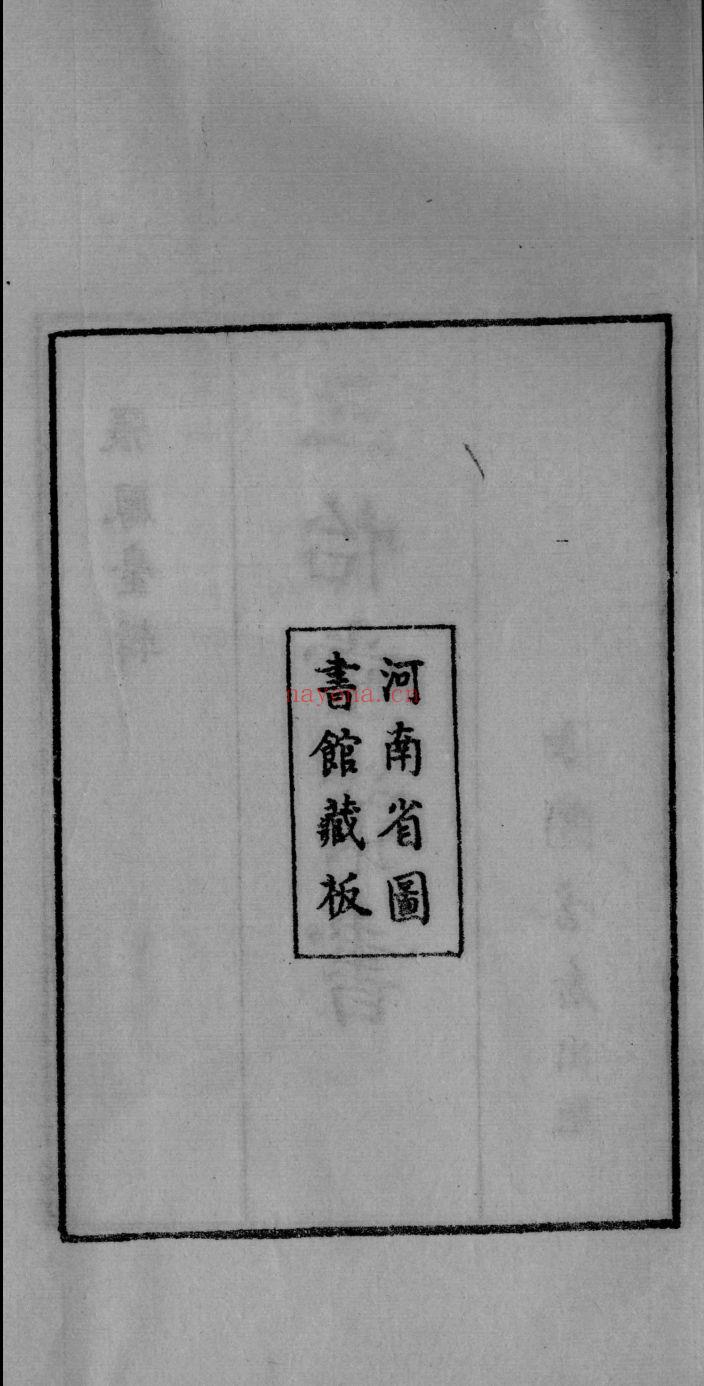 河南省圖
書館藏板
nayona.cn